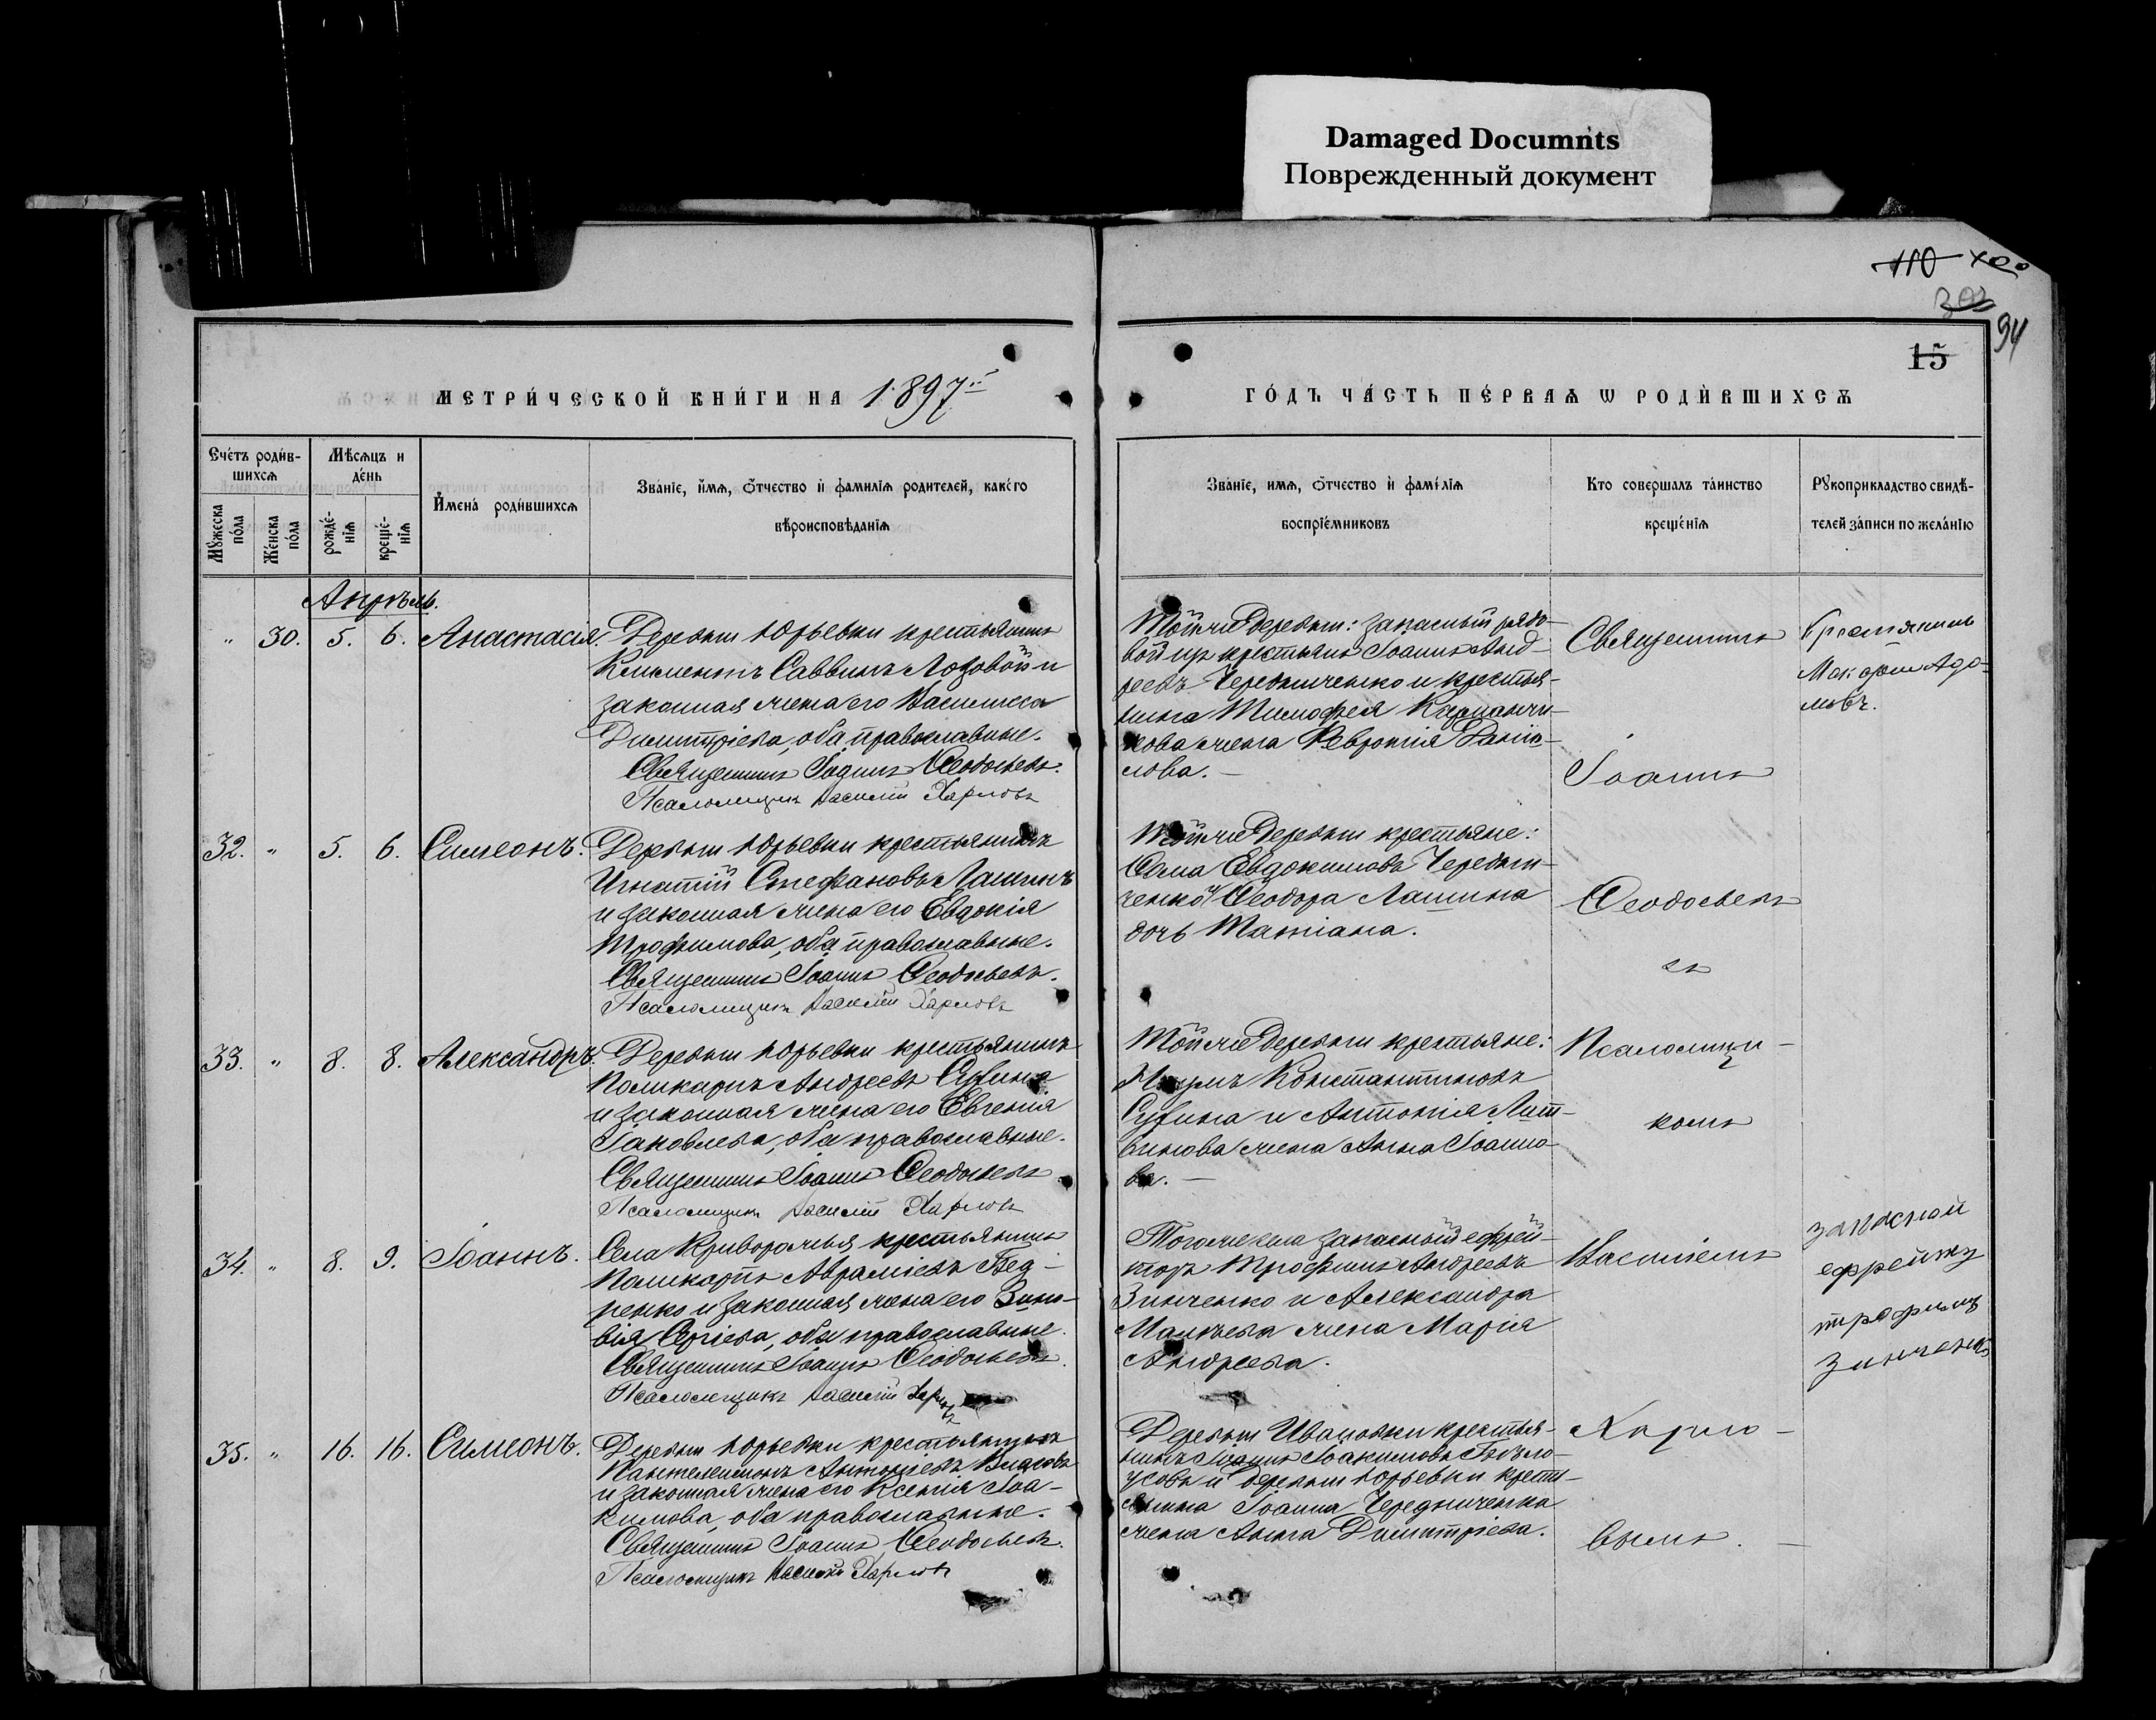 Damaged Documnts
Поврежденный документ
110
94
15
МЕТРИ́ЧЕСКОЙ КНИ́ГИ НА 1897й
ГО́ДЪ ЧА́СТЬ ПЕ́РВАѦ Ѡ РОДИ́ВШИХСѦ
Сче́тъ роди́в-
шихсѧ
Мѣ́сѧцъ и
де́нь
Мꙋ́жеска
по́ла
Же́нска
по́ла
рожде́-
нїѧ
креще́-
нїѧ
И҆мена́ роди́вшихсѧ
Зва́нїе, и҆́мѧ, ѻ҆́тчество и҆ фами́лїѧ роди́телей, како́го
вѣроисповѣ́данїѧ
Зва́нїе, имѧ, ѻ҆́тчество и҆ фами́лїѧ
воспрїе́мниковъ
Кто соверша́лъ та́инство
креще́нїѧ
Рꙋкоприкладство свидѣ́-
телей за́писи по жела́нїю
Апрѣль.
" 30. 5. 6. Анастасія.
Деревни Юрьевки крестьянинъ
Климентъ Саввинъ Лозовой и
законная жена его Василисса
Димитріева, оба православные.
Священникъ Іоаннъ Ѳеодосьевъ.
Псаломщикъ Василій Харловъ
Той же деревни: запасный рядо-
вой изъ крестьянъ Іоаннъ Анд-
реевъ Чередниченко и крестья-
нина Тимофея
кова жена Ѳевронія Даніи-
лова.
Священникъ
Іоаннъ
Крестянинъ
Макарий Ада-
мовъ.
32. " 5. 6. Симеонъ.
Деревни Юрьевки крестьянинъ
Игнатій Стефановъ Лашинъ
и законная жена его Евдокія
Трофимова, оба православные.
Священникъ Іоаннъ Ѳеодосьевъ.
Псаломщикъ Василій Харловъ
Той же деревни крестьяне:
Ѳома Евдокимовъ Чередни-
ченко и Ѳеодора Лашина
дочь Татіана.
Ѳеодосьевъ
съ
33. " 8. 8. Александръ.
Деревни Юрьевки крестьянинъ
Поликарпъ Андреевъ
и законная жена его Евгенія
Іаковлева, оба православные.
Священникъ Іоаннъ Ѳеодосьевъ
Псаломщикъ Василій Харловъ
Той же деревни крестьяне:
Наумъ Константиновъ
и Антонія Лит-
винова жена Анна Іоанно-
ва.
Псаломщи-
комъ
34. " 8. 9. Іоаннъ.
Села Криворожья крестьянинъ
Поликарпъ Авраміевъ Бед-
ренко и законная жена его Зино-
вія Сергіева, оба православные.
Священникъ Іоаннъ Ѳеодосьевъ.
Псаломщикъ Василій Харловъ
Того же села запасный ефрей-
торъ Трофимъ Андреевъ
Зинченко и Александра
жена Марія
Андреева.
Василіемъ
запасной
ефрейтр
трофимъ
Зинченко
35. " 16. 16. Симеонъ.
Деревни Юрьевки крестьянинъ
Пантелеимонъ Антоніевъ Власовъ
и законная жена его Ксенія Іоа-
кимова, оба православные.
Священникъ Іоаннъ Ѳеодосьевъ.
Псаломщикъ Василій Харловъ
Деревни Ивановки крестья-
нинъ Іоаннъ Іоакимовъ Бѣло-
усовъ и деревни Юрьевки кресть-
янина Іоанна Чередниченка
жена Анна Димитріева.
Харло-
вымъ.